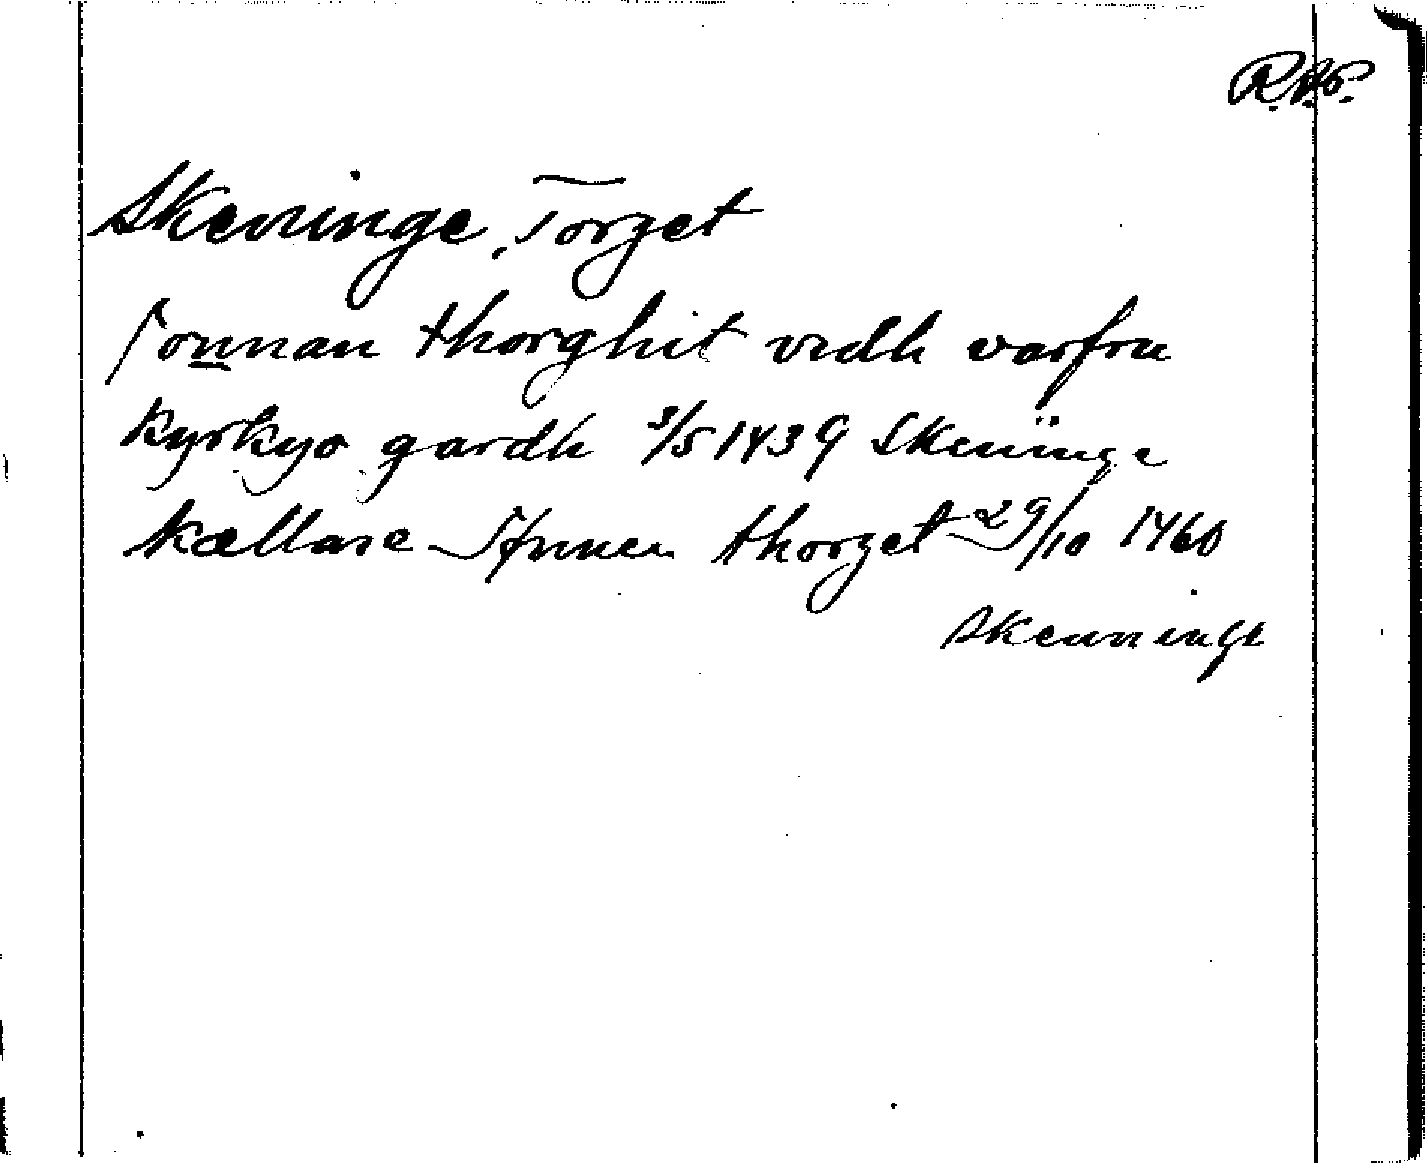 R.A.P.
Skeninge, Torget
sonnan thorghit vidh varfru
kyrkyo gardh 3/5 1439 Skeninge
kællare synnen thorget 29/10 1460
Skenninge